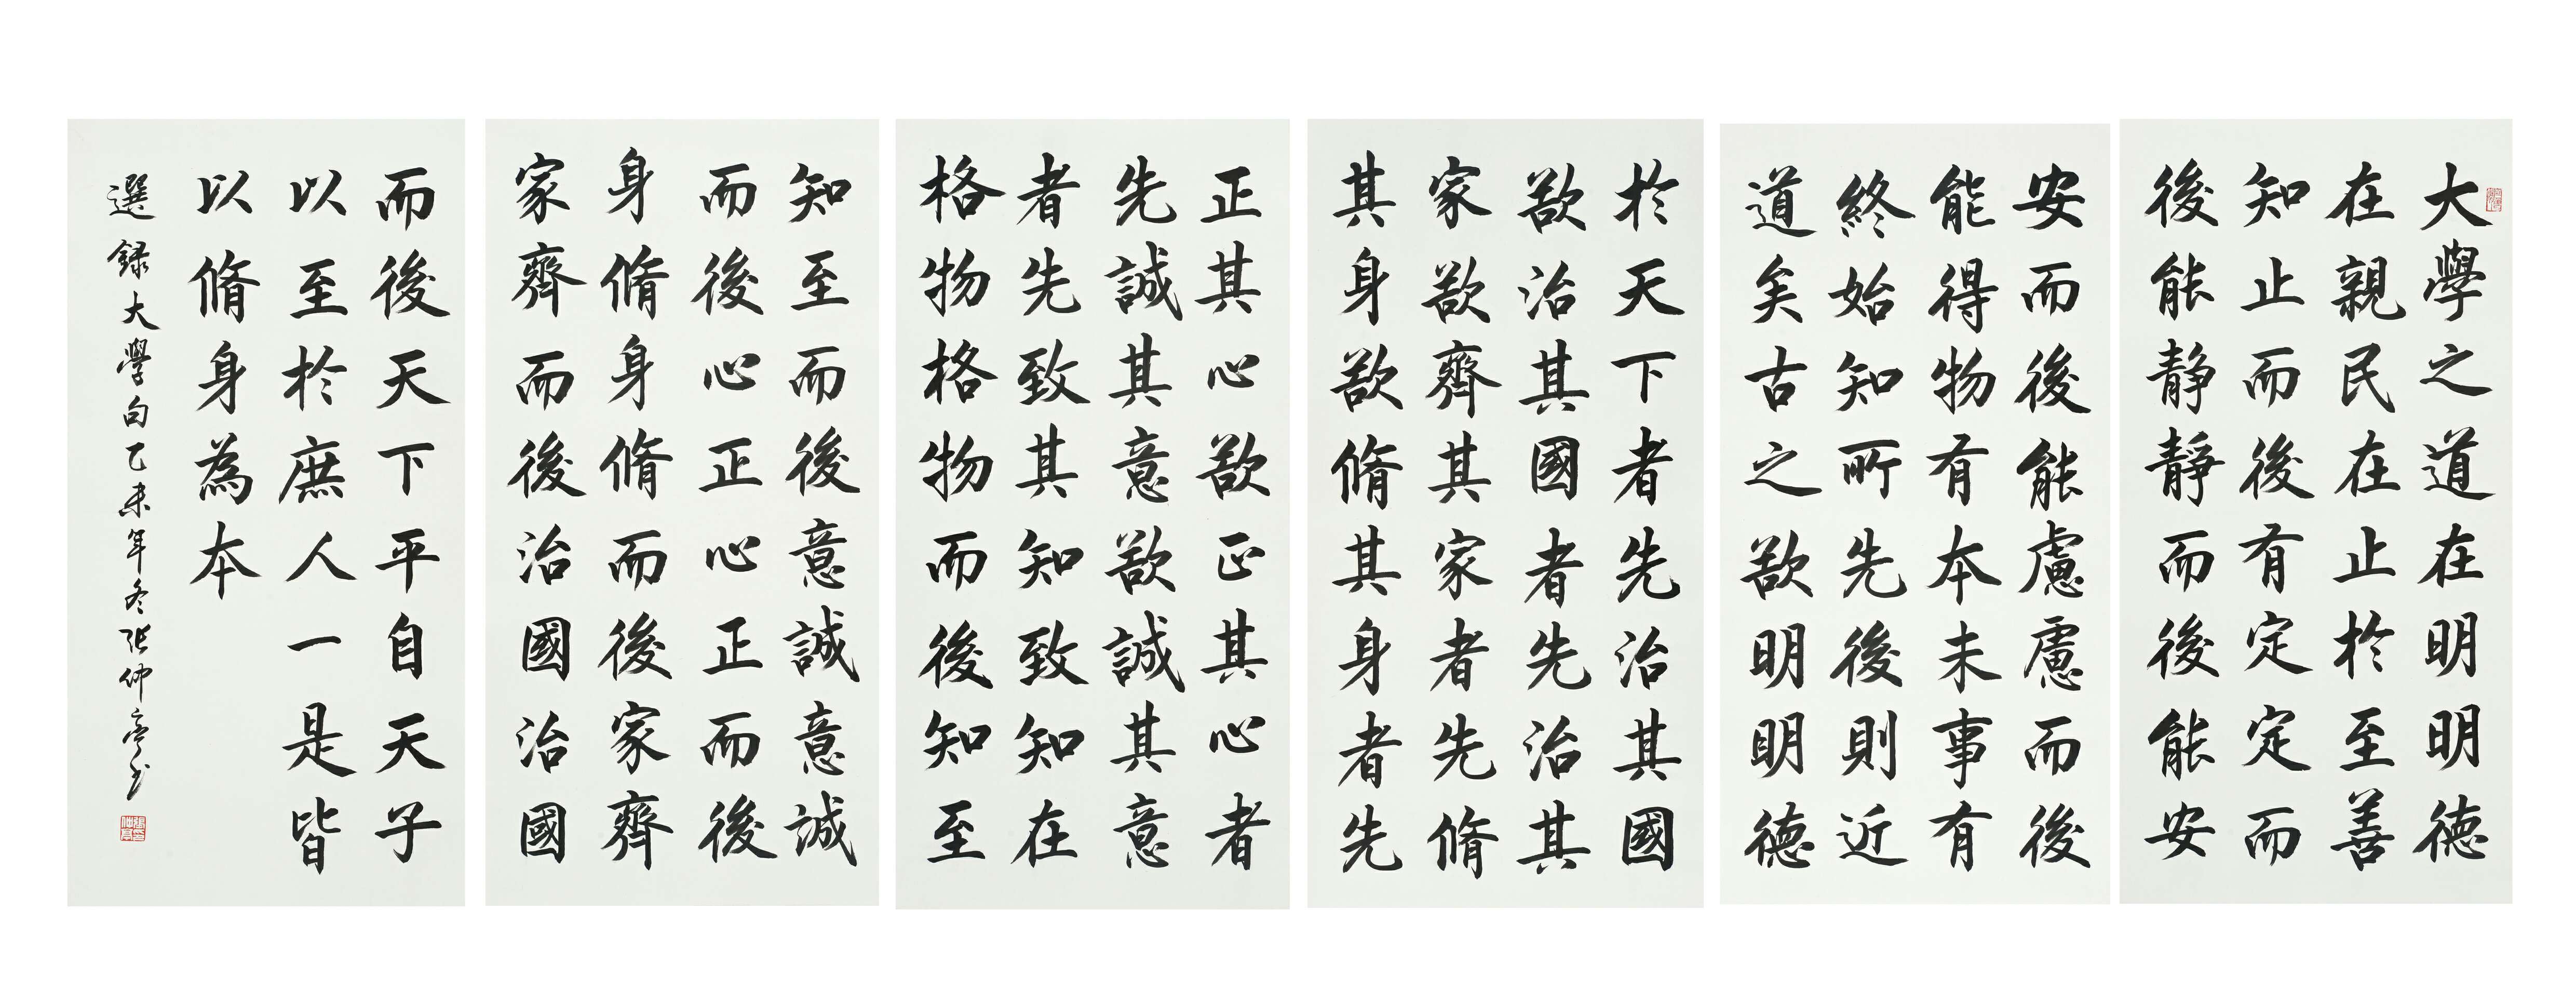 大學之道在明明德
在親民在止於至善
知止而後有定定而
後能靜靜而後能安
安而後能慮慮而後
能得物有本未事有
終始知所先後則近
道矣古之欲明明德
於天下者先治其國
欲治其國者先治其
家欲齊其家者先脩
其身欲脩其身者先
正其心欲正其心者
先誠其意欲誠其意
者先致其知致知在
格物格物而後知至
知至而後意誠意誠
而後心正心正而後
身脩身脩而後家齊
家齊而後治國治國
而後天下平自天子
以至於庶人一是皆
以脩身為本
選録大學句乙未年冬張仲亭书